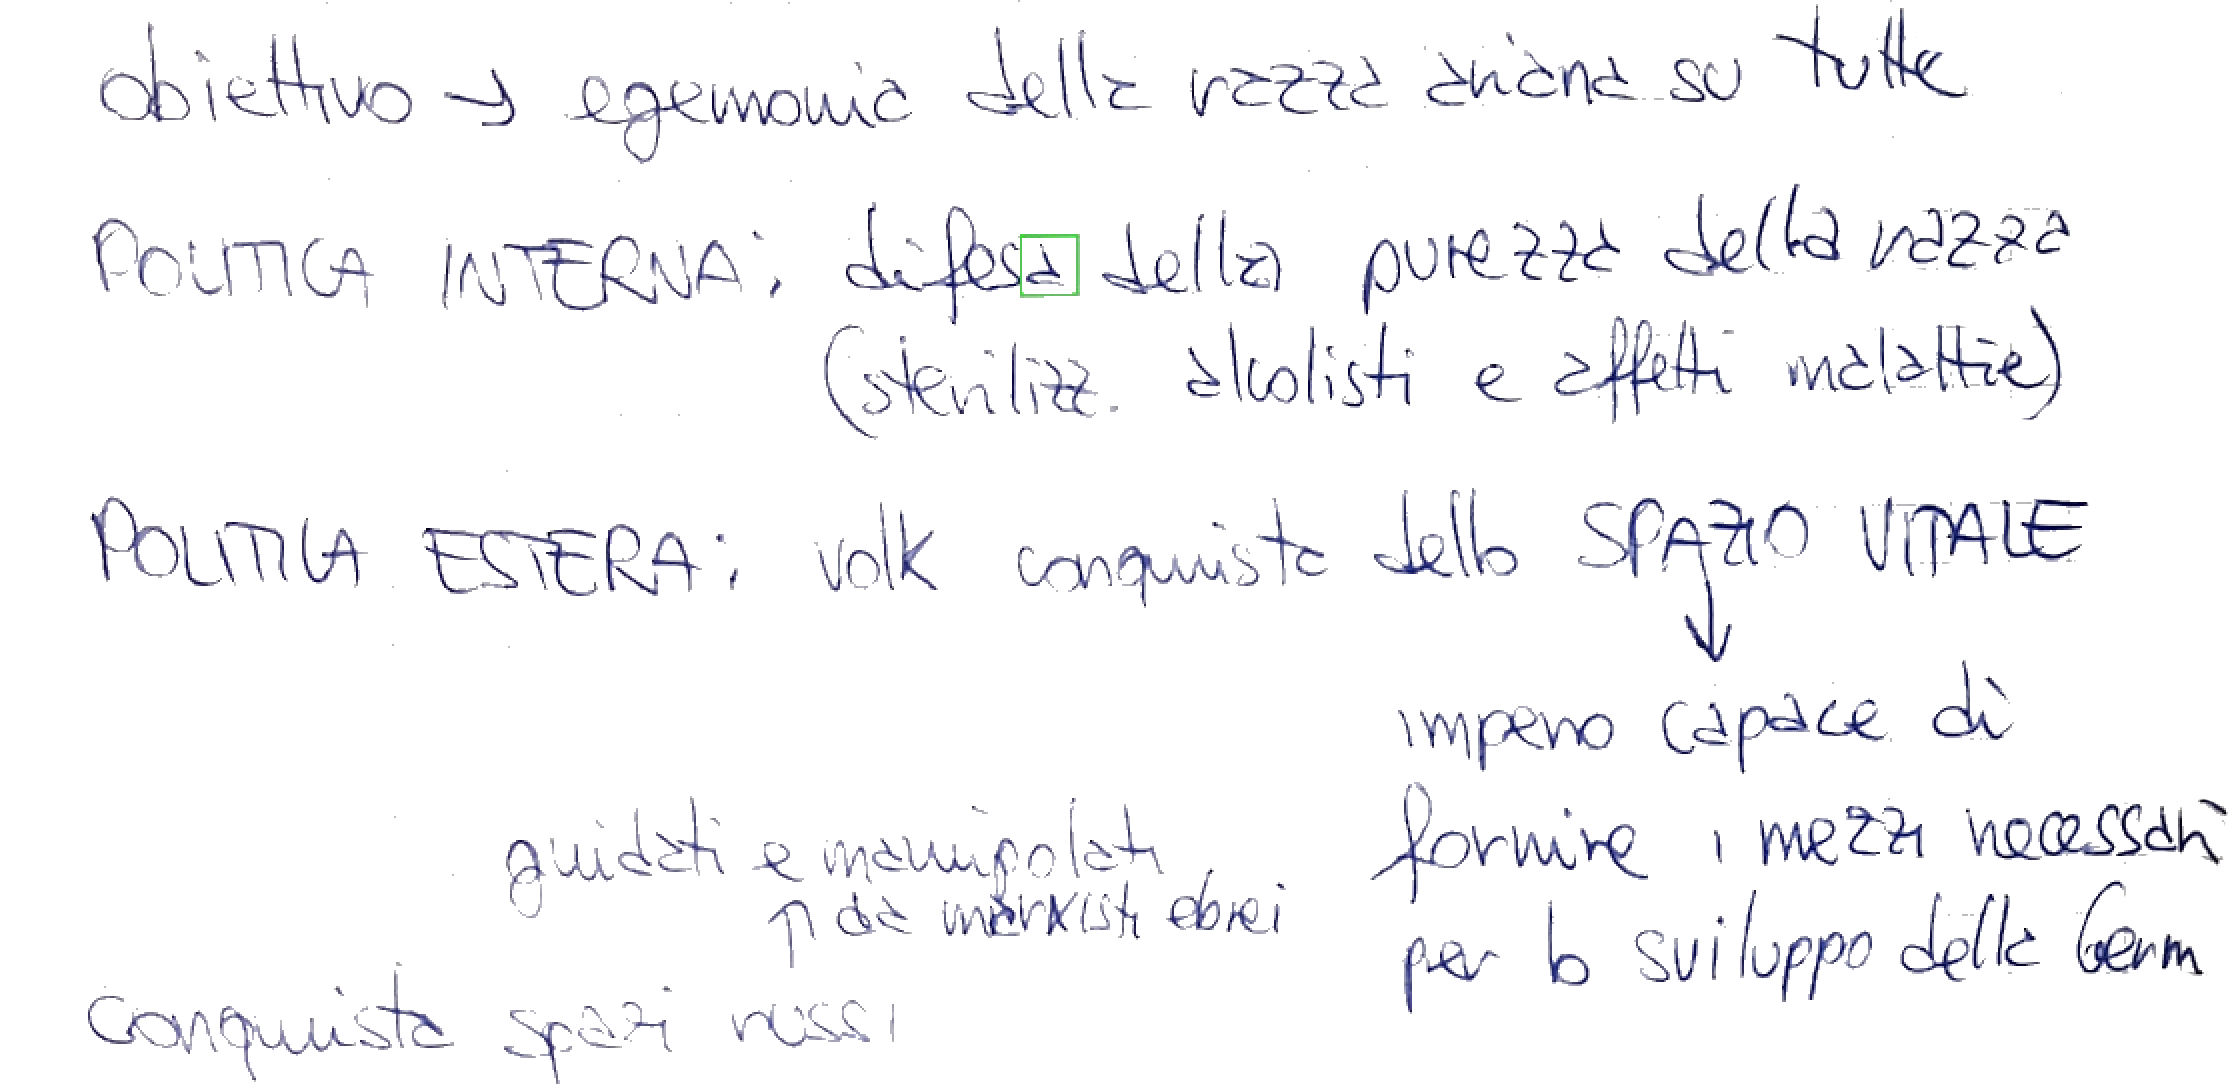 obiettivo → egemonia della razza ariana su tutte
POLITICA INTERNA: difesa della purezza della razza
(sterilizz. alcolisti e affetti malattie)
POLITICA ESTERA: volk conquista dello SPAZIO VITALE
↓
impero capace di
fornire i mezzi necessari
per lo sviluppo della Germ
guidati e manipolati
↑ da marxisti ebrei
conquista spazi russi